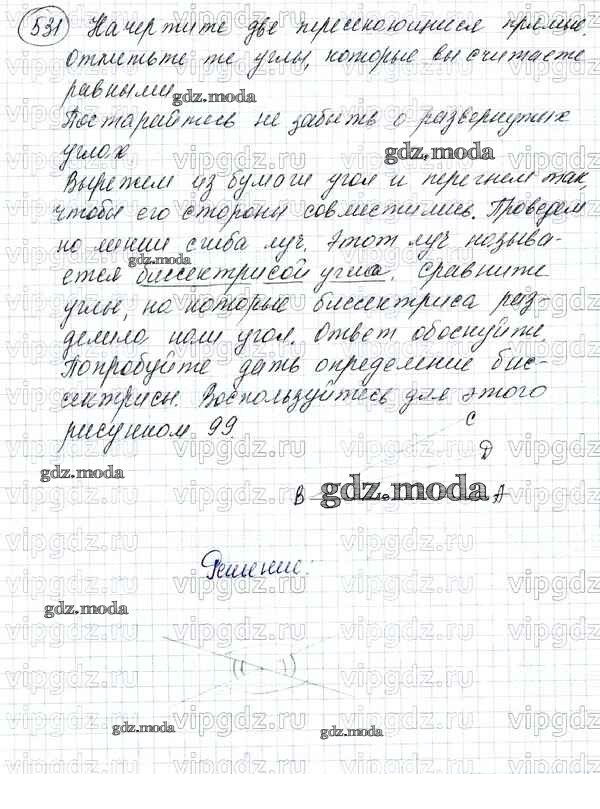 531 Начертите две пересекающиеся прямые.
Отметьте те углы, которые вы считаете
равными.
gdz.moda
Постарайтесь не забыть о развернутых
углах
gdz.moda
Вырежем из бумаги угол и перегнем так,
чтобы его стороны совместились. Проведем
по линии сгиба луч. Этот луч называ-
gdz.moda
ется биссектрисой угла. Сравните
углы, на которые биссектриса раз-
делила наш угол. Ответ обоснуйте.
Попробуйте дать определение бис-
сектрисы. Воспользуйтесь для этого
рисунком 99.
C
D
gdz.moda
B gdz.moda A
Решение:
gdz.moda
gdz.moda
gdz.moda
vipgdz.ru